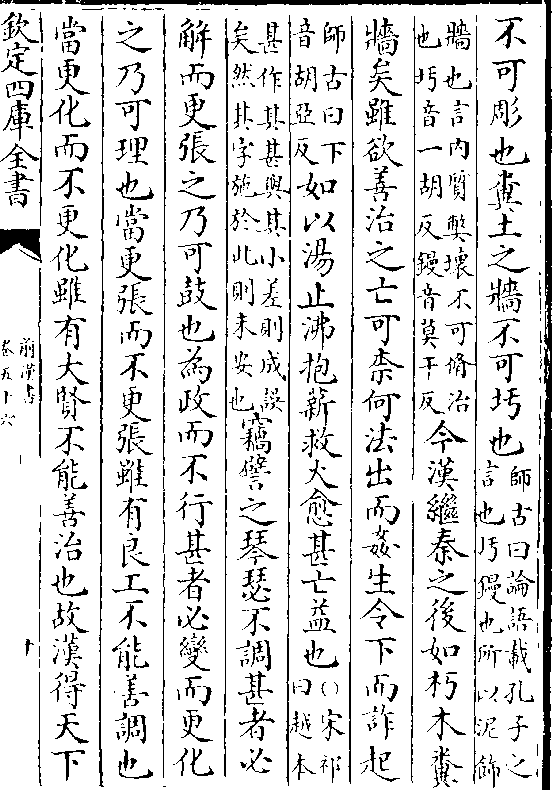 不可彫也糞土之牆不可圬也師古曰論語載孔子之言也圬鏝也所以泥飾
牆也言内質弊壞不可脩治也圬音一胡反鏝音莫干反今漢繼秦之後如朽木糞
牆矣雖欲善治之亡可柰何法出而姦生令下而詐起
師古曰下音胡亞反如以湯止沸抱薪救火愈甚亡益也○宋祁曰越本
甚作其甚與其小差則成誤矣然其字施於此則未安也竊譬之琴瑟不調甚者必
解而更張之乃可鼓也為政而不行甚者必變而更化
之乃可理也當更張而不更張雖有良工不能善調也
當更化而不更化雖有大賢不能善治也故漢得天下
欽定四庫全書
前漢書
卷五十六
十